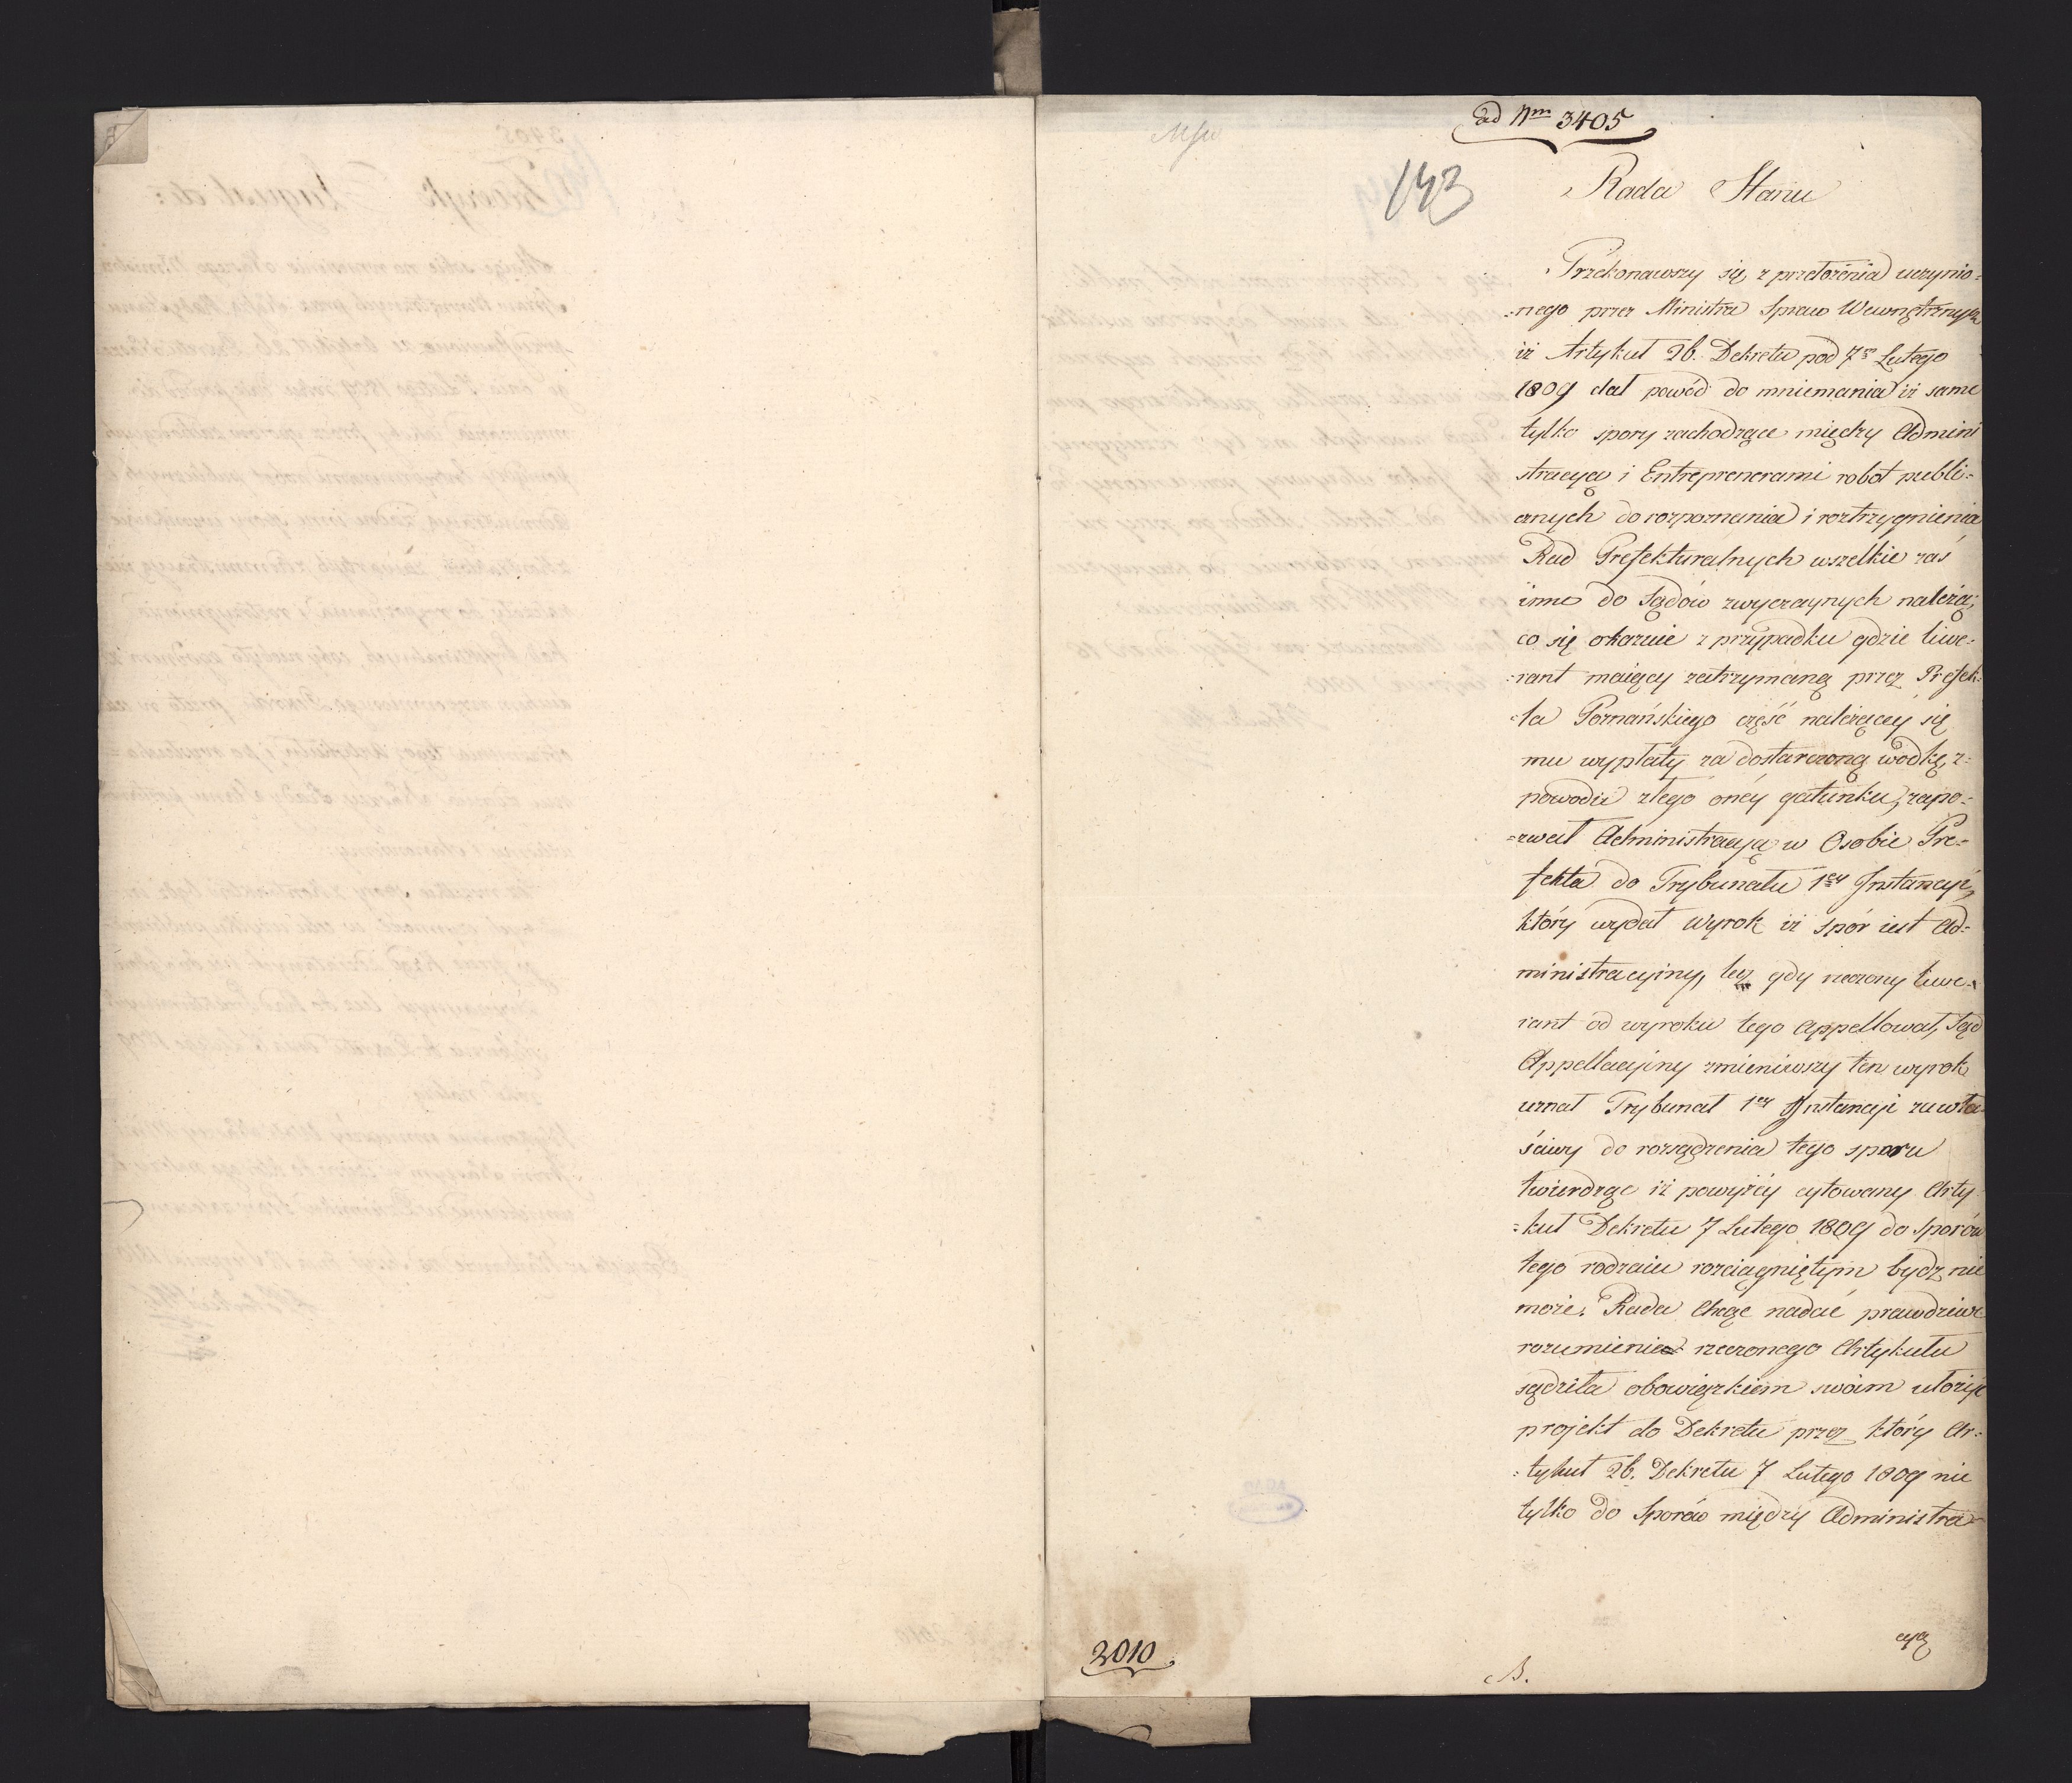 ad Nrm 3405
143
Rada Stanu
Przekonawszy się z przełożenia uczynio=
=nego przez Ministra Spraw Wewnętrznych
iż Artykuł 26. Dekretu pod 7m Lutego
1809 dał powód do mniemania iż same
tylko spory zachodzące między Admini
stracyą i Entreprenerami robot publi=
cznych do rozpoznania i roztrzygnienia
Rad Prefekturalnych wszelkie zaś
inne do Sądów zwyczaynych należą;
co się okazuie z przypadku gdzie liwe=
=rant maiący zatrzymaną przez Prefek=
=ta Poznańskiego część należącey się
mu wypłaty za dostarczoną wodkę, z=
powodu złego oney gatunku, zapo=
=zwał Administracyą w Osobie Pre=
fekta do Trybunału 1ey Instancyi,
który wydał wyrok iż spór iest Ad=
ministracyiny, lecz gdy rzeczony liwe=
rant od wyroku tego Appellował, Sąd
Appellacyiny zmieniwszy ten wyrok
uznał Trybunał 1ey Instancyi za wła
ściwy do rozsądzenia tego sporu
twierdząc iż powyżey cytowany Arty
=kuł Dekretu 7 Lutego 1809 do Sporów
tego rodzaiu rozciągniętym bydź nie
może. Rada Chcąc nadać prawdziwe
rozumienie rzeczonego Artykułu
sądziła obowiązkiem swoim ułożyć
projekt do Dekretu przez który Ar=
=tykuł 26. Dekretu 7 Lutego 1809 nie
tylko do Sporów między Administra=
cyą
2010
B.